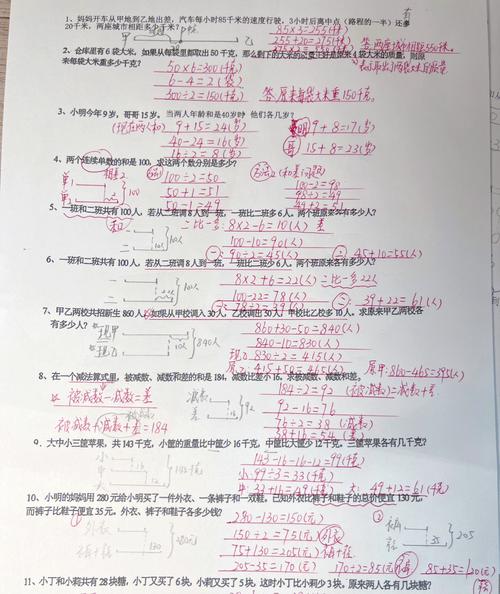 1、妈妈开车从甲地到乙地出差，汽车每小时85千米的速度行驶，3小时后离中点（路程的一半）还多
20千米，两座城市相距多少千米？
85×3=255(千
2、仓库里有6袋大米，如果从每袋里都取出50千克，那么剩下的大米的总量正好是原来
来每袋大米重多少千克？
50×6=300(千克)
6-4=2(袋)
300÷2=150(千克)
答:原来每袋大米重150千克。
3、小明今年9岁，哥哥15岁。当两人年龄和是40岁时 他们各几岁？
9+15=24(岁)
9+8=17(岁)
40-24=16(岁)
16÷2=8(岁)
15+8=23(岁)
4、两个连续单数的和是100，求这两个数分别是多少？
100÷2=50
100-2=98
50+1=51
50-1=49
5、一班和二班共有100人，若从二班调8人到一班，一班比二班多6人，两个班原来各有多少人？
8×2-6=10(人)
100-10=90(人)
90÷2=45(人)
45+10=55(人)
6、一班和二班共有100人，若从二班调8人到一班，一班比二班少6人，两个班原来各有多少人？
8×2+6=22(人)
100-22=78(人)
78÷2=39(人)
39+22=61(人)
7、甲乙两校共招新生860人，如果从甲校调入30人，乙校调出50人，甲校比乙校多10人，求原来甲乙两校各
有多少人？
860+30-50=840(人)
840-10=830(人)
现乙 830÷2=415(人)
原乙 415+50=465(人)
原甲:860-465=395(人)
8、在一个减法算式里，被减数、减数和差的和是184，减数比差小16，求被减数、减数和差。
184÷2=92
被减数-减数=差
92-16=76
76÷2=38
被减数+减数+差=184
38+16=54(差)
9、大中小三筐苹果，共143千克，小筐的重量比中筐少16千克，中筐比大筐少12千克，三筐苹果各有几千克？
143-16-16-12=99(千克)
小:99÷3=33(千克)
中:33+16=49(千克)
大:49+12=61(千克)
10、小明的妈妈用280元给小明买了一件外衣、一条裤子和一双鞋，已知外衣比裤子和鞋子的总价便宜130元，
而裤子比鞋子便宜35元。外衣、裤子和鞋子各多少钱？
280-130=150(元)
150÷2=75(元)
75+130=205(元)
205-35=170(元)
170÷2=85(元)
85+35=120(元)
11、小丁和小莉共有28块糖，小丁又买了6块，小莉又买了5块，这时小丁比小莉少3块，原来两人各有几块糖？